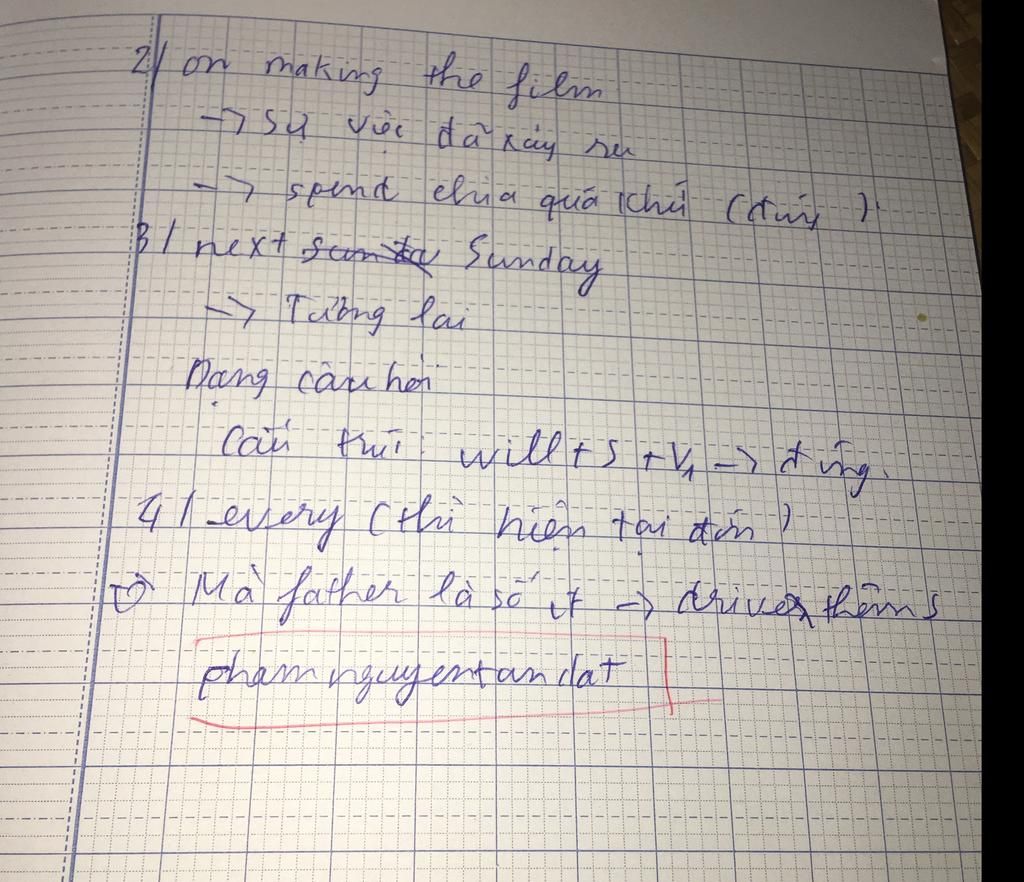 2/ on making the film
→ sự việc đã xảy ra
→ spend chia quá khứ (đúng)
3/ next Sunday
→ Tương lai
Dạng câu hỏi
Cấu trúc: will + S + V1 → đúng.
4/ every (thì hiện tại đơn)
⇒ Mà father là số ít → drives thêm s
phamnguyentandat